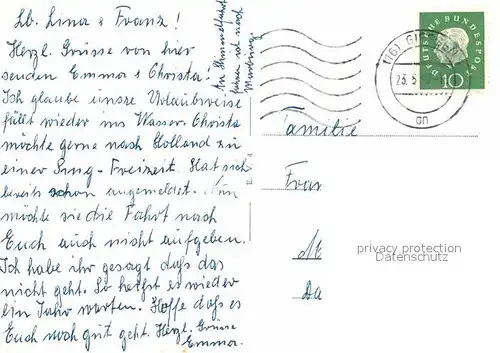 Lb. Lina & Franz!
Herzl. Grüsse von hier
senden Emma & Christa!
Ich glaube unsre Urlaubsreise
fällt wieder ins Wasser. Christa
möchte gerne nach Holland zu
einer Sing-Freizeit. Hat sich
bereits schon angemeldet. Nun
möchte sie die Fahrt nach
Euch auch nicht aufgeben.
Ich habe ihr gesagt dass das
nicht geht. So heisst es wieder
ein Jahr warten. Hoffe dass es
Euch noch gut geht. Herzl. Grüsse
Emma.
An Himmelfahrt
fahren wir nach
Marburg.
DEUTSCHE BUNDESPOST
10
(16)
23.5
an
Familie
Fran
privacy protection
Datenschutz